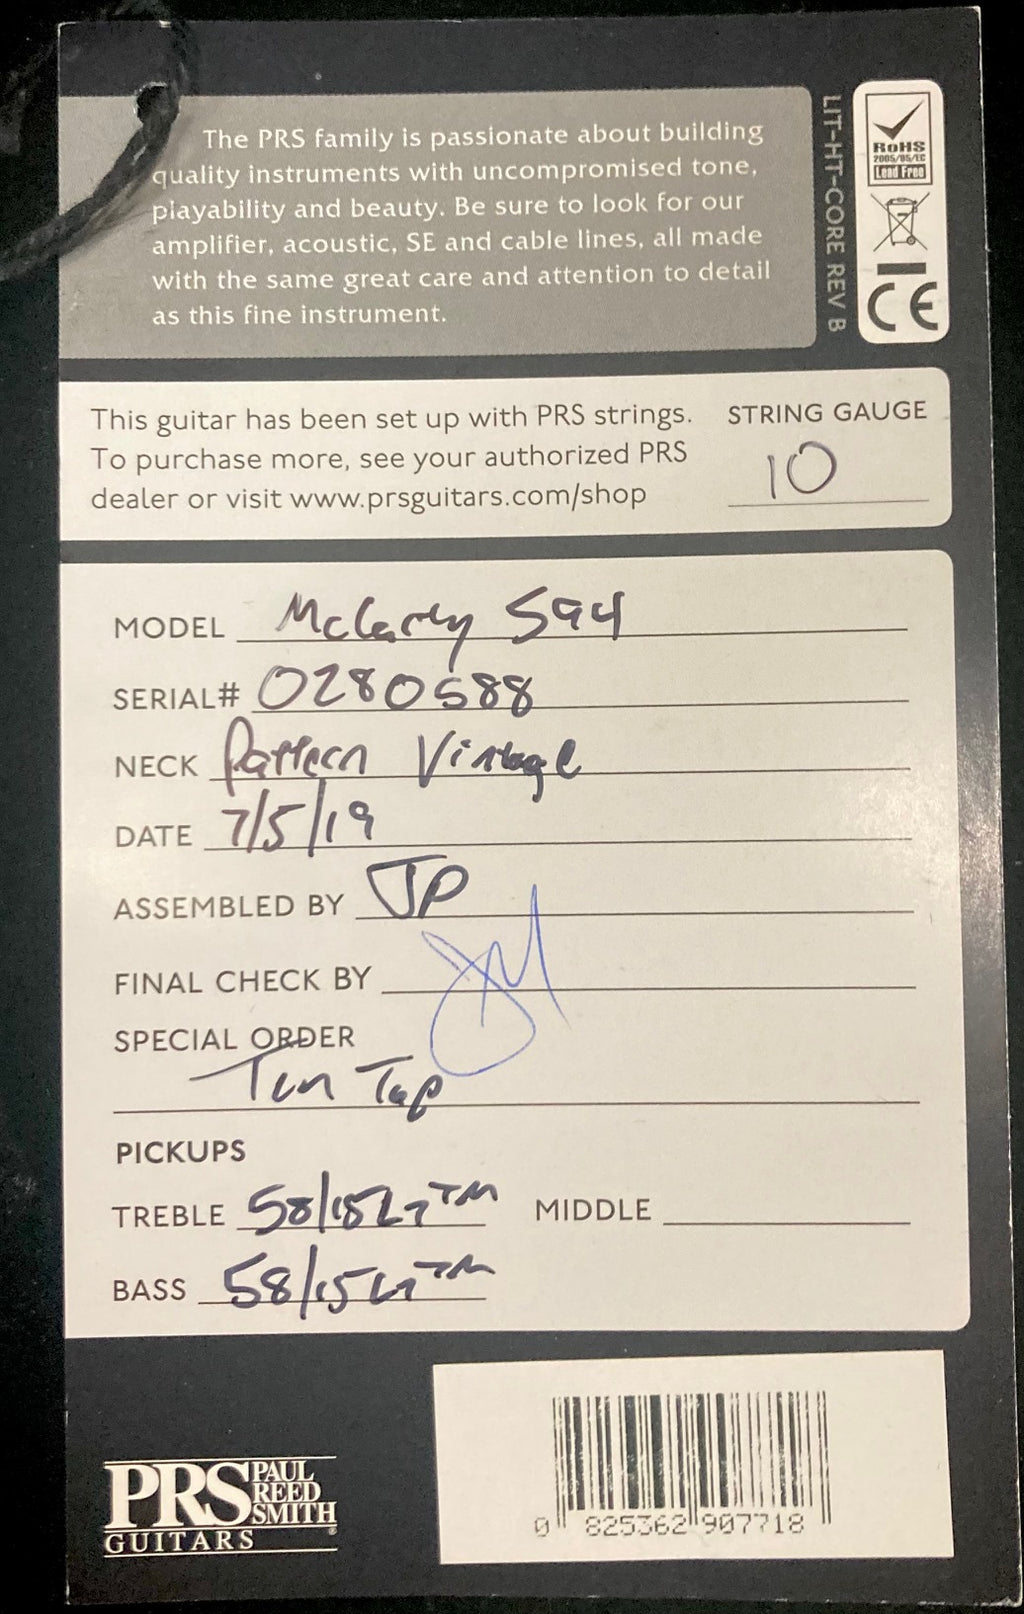 The PRS family is passionate about building
quality instruments with uncompromised tone,
playability and beauty. Be sure to look for our
amplifier, acoustic, SE and cable lines, all made
with the same great care and attention to detail
as this fine instrument.
LIT-HT-CORE REV B
RoHS
2005/95/EC
Lead Free
CE
This guitar has been set up with PRS strings.
To purchase more, see your authorized PRS
dealer or visit www.prsguitars.com/shop
STRING GAUGE
10
MODEL McCarty 594
SERIAL# 0280588
NECK Pattern Vintage
DATE 7/5/19
ASSEMBLED BY JP
FINAL CHECK BY
SPECIAL ORDER
Ten Top
PICKUPS
TREBLE 58/15LT TM MIDDLE
BASS 58/15LT TM
PRS PAUL REED SMITH
GUITARS
0 825362 907718